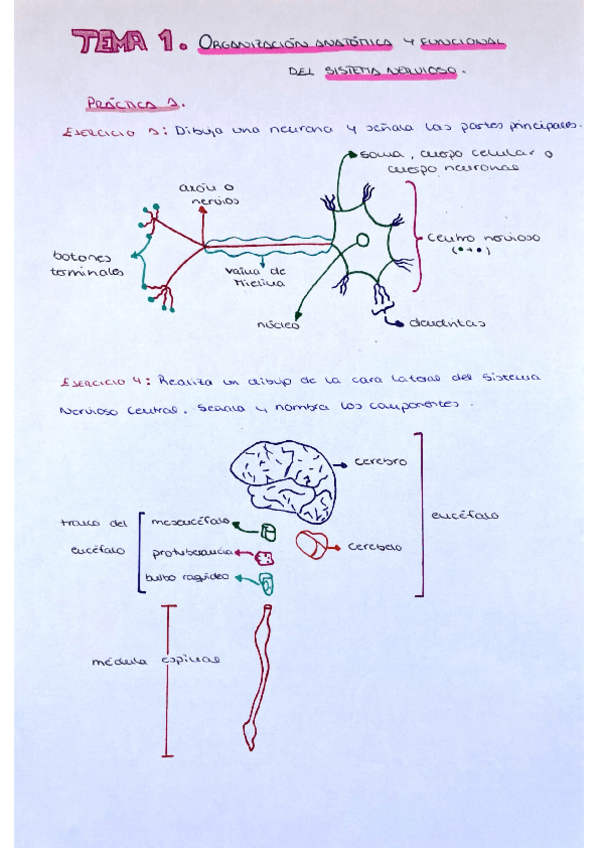 TEMA 1. ORGANIZACIÓN ANATÓMICA Y FUNCIONAL
DEL SISTEMA NERVIOSO.
PRÁCTICA 1.
EJERCICIO 1: Dibuja una neurona y señala las partes principales.
soma, cuerpo celular o
cuerpo neuronal
axón o
nervios
botones
terminales
vaina de
mielina
centro nervioso
(•+•)
núcleo
dendritas
EJERCICIO 4: Realiza un dibujo de la cara lateral del Sistema
Nervioso Central. Señala y nombra los componentes.
cerebro
encéfalo
tronco del
encéfalo
mesencéfalo
protuberancia
bulbo raquídeo
cerebelo
médula espinal